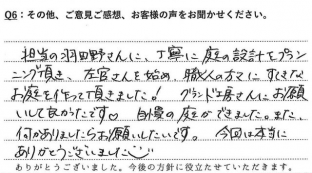 Q6：その他、ご意見ご感想、お客様の声をお聞かせください。
担当の羽田野さんに、丁寧に庭の設計をプラン
ニング頂き、左官さんを始め、職人の方々に すてきな
お庭を作って頂きました! グランド工房さんに お願
いして良かったです♡ 自慢の庭ができました。また、
何かありましたらお願いしたいです。 今回は本当に
ありがとうございました
ありがとうございました。今後の方針に役立たせていただきます。